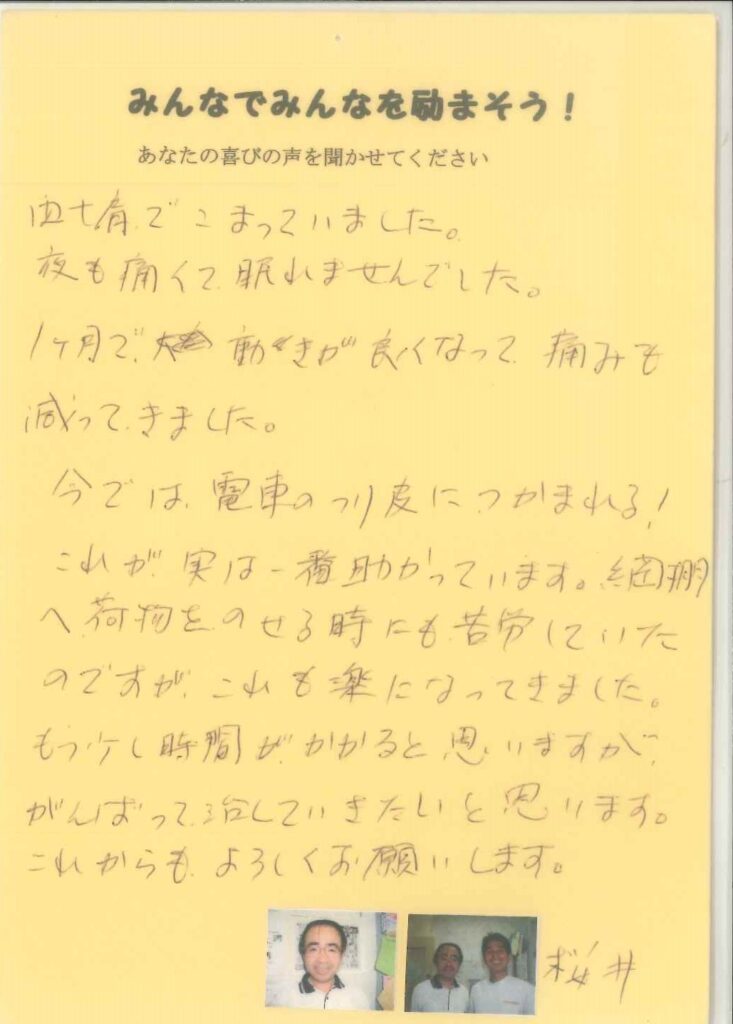 みんなでみんなを励まそう!
あなたの喜びの声を聞かせてください
四十肩でこまっていました。
夜も痛くて眠れませんでした。
1ヶ月で、動きが良くなって痛みも
減ってきました。
今では、電車のつり皮につかまれる!
これが実は一番助かっています。網棚
へ荷物をのせる時にも苦労していた
のですが、これも楽になってきました。
もう少し時間がかかると思いますが、
がんばって治していきたいと思います。
これからもよろしくお願いします。
桜井